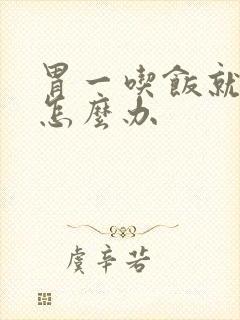 胃一喫飯就
怎麼办
虞辛苦